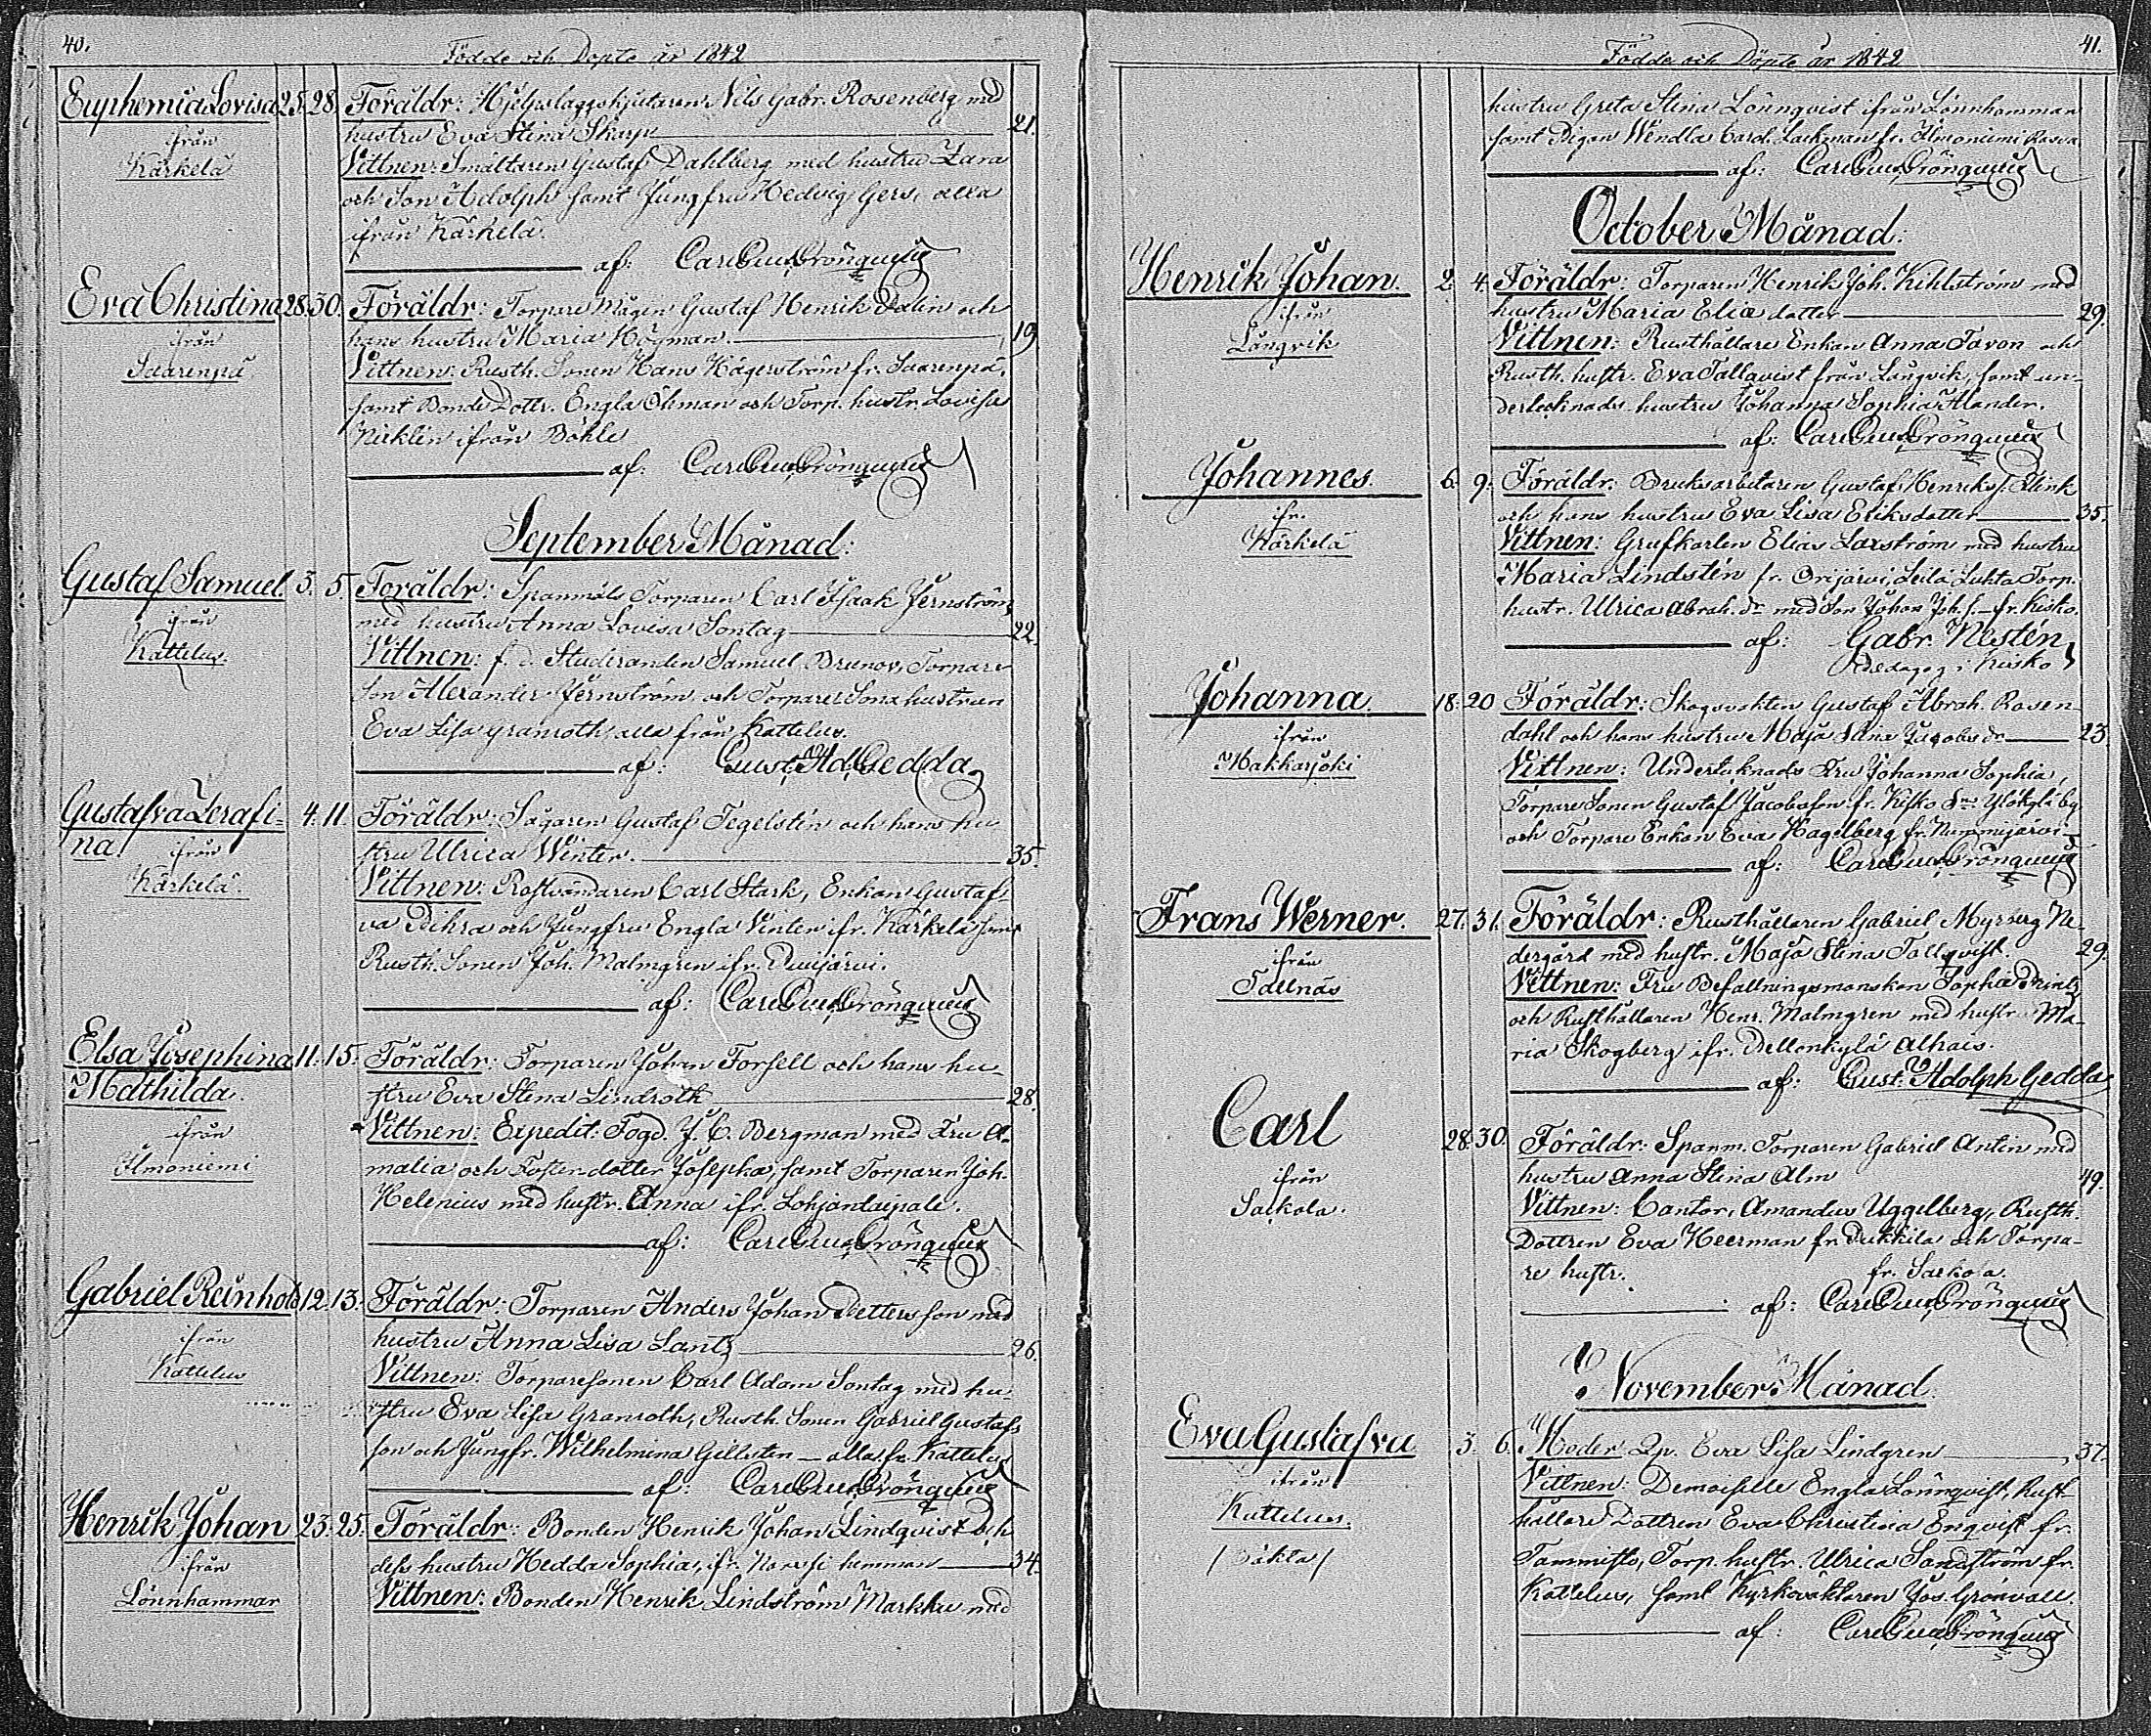 40.
Födde och Döpte år 1842
Euphemia Lovisa 25. 28. Föräldr: Nils Gabr. Rosenberg med
ifrån hustru Eva Stina Skarp 21.
Kärkelä Vittnen: Smältaren Gustaf Dahlberg med hustru Zara
och Son Adolph samt Jungfru Hedvig Gers, alla
ifrån Kärkelä.
af: Carl Gust Grönqvist
Eva Christina 28. 30. Föräldr: Torpare Mågen Gustaf Henrik Dalin och
ifrån hans hustru Maria Högman. 19.
Saarenpä Vittnen: Rusth. Sonen Hans Hägerström fr. Saarenpä,
samt Bonde Dottr. Engla Öhman och Torp. hustr. Lovisa
Nicklin ifrån Böhle
af: Carl Gust Grönqvist
September Månad:
Gustaf Samuel. 3. 5. Föräldr: Spanmåls Torparen Carl Isaak Jernström
ifrån med hustru Anna Lovisa Sontag 22.
Kattelus. Vittnen: f. d. Studeranden Samuel Brunov, Torpare
Son Alexander Jernström och Torpare Sona hustrun
Eva Lisa Granroth, alla från Kattelus.
af: Gust. Ad. Gedda
Gustafva Zerafi- 4. 11. Föräldr: Sågaren Gustaf Tegelstén och hans hu-
na. ifrån stru Ulrica Winter. 35.
Kärkelä. Vittnen: Rostvändaren Carl Stark, Enkan Gustaf-
va och Jungfru Engla Vinter ifr. Kärkelä samt
Rusth. Sonen Joh. Malmgren ifr.
af: Carl Gust Grönqvist
Elsa Josephina 11. 15. Föräldr: Torparen Johan Forsell och hans hu-
Mathilda. stru Eva Stina Lindroth 28.
ifrån Vittnen: Expedit. Fogd. J. C. Bergman med Fru A-
Ilmoniemi malia och Fosterdotter Josepha, samt Torparen Joh.
Helenius med hustr. Anna ifr. Lohjantaipale.
af: Carl Gust Grönqvist
Gabriel Reinhold 12. 13. Föräldr: Torparen Anders Johan Pettersson med
ifrån hustru Anna Lisa Lantz 26.
Kattelus Vittnen: Torparesonen Carl Adam Sontag med hu-
stru Eva Lisa Granroth, Rusth. Sonen Gabriel Gustafs-
son och Jungfr. Wilhelmina Gillsten – alla fr. Kattelus
af: Carl Gust Grönqvist
Henrik Johan 23. 25. Föräldr: Bonden Henrik Johan Lindqvist och
ifrån dess hustru Hedda Sophia, ifr. hemman 34.
Lönnhammar Vittnen: Bonden Henrik Lindström Markku med
41.
Födde och Döpte år 1842
hustru Greta Stina Lönnqvist ifrån Lönnhammar
samt Pigan Wendla Carol. Lackman fr. Ilmoniemi
af: Carl Gust Grönqvist
October Månad:
Henrik Johan. 2. 4. Föräldr: Torparen Henrik Joh. Kihlström med
ifrån hustru Maria Elia dotter 29.
Långvik Vittnen: Rusthållare Enkan Anna Tavon och
Rusth. hustr. Eva Tallqvist från Långvik, samt un-
dertecknads hustru Johanna Sophia
af: Carl Gust Grönqvist
Johannes. 6. 9. Föräldr: Bruksarbetaren Gustaf Henrikss. Flink
ifr. och hans hustru Eva Lisa Eriksdotter 35.
Kärkelä Vittnen: Grufkarlen Elias Laxström med hustru
Maria Lindstén fr. Orijärvi, Torp.
hustr. Ulrica Abrah. dr med Son Johan Joh. s. – fr. Kisko.
af: Gabr. Nestén,
Pedagog i Kisko
Johanna. 18. 20. Föräldr: Skogsvakten Gustaf Abrah. Rosen-
ifrån dahl och hans hustru Maja Jacobs dr 23.
Makkarjoki Vittnen: Undertecknads Fru Johanna Sophia,
Torpare Sonen Gustaf Jacobsson fr. Kisko by
och Torpare Enkan Eva Hagelberg fr. Nummijärvi
af: Carl Gust Grönqvist
Frans Werner. 27. 31. Föräldr: Rusthållaren Gabriel Myrberg Ne-
ifrån dergård med hustr. Maja Stina Tallqvist. 29.
Tallnäs Vittnen: Fru Befallningsmanskan Sophia
och Rusthållaren Henr. Malmgren med hustr. Ma-
ria Skogberg ifr. Alhais.
af: Gust. Adolph Gedda
Carl 28. 30. Föräldr: Spanm. Torparen Gabriel Antin med
ifrån hustru Anna Stina Alm 49.
Sackola. Vittnen: Cantor, Amandus Uggelberg, Rusth.
Dottren Eva Heerman fr. och Torpa-
re hustr. fr. Sackola.
af: Carl Gust Grönqvist
November Månad
Eva Gustafva 3. 6. Moder Qp. Eva Lisa Lindgren 37.
ifrån Vittnen: Demoiselle Engla Lönnqvist, Rust-
Kattelus. hållare Dottren Eva Christina Enqvist fr.
/oäkta/ Tammisto, Torp. hustr. Ulrica Sandström fr.
Kattelus, samt Kyrkoväktaren Jos. Grönvall.
af: Carl Gust Grönqvist